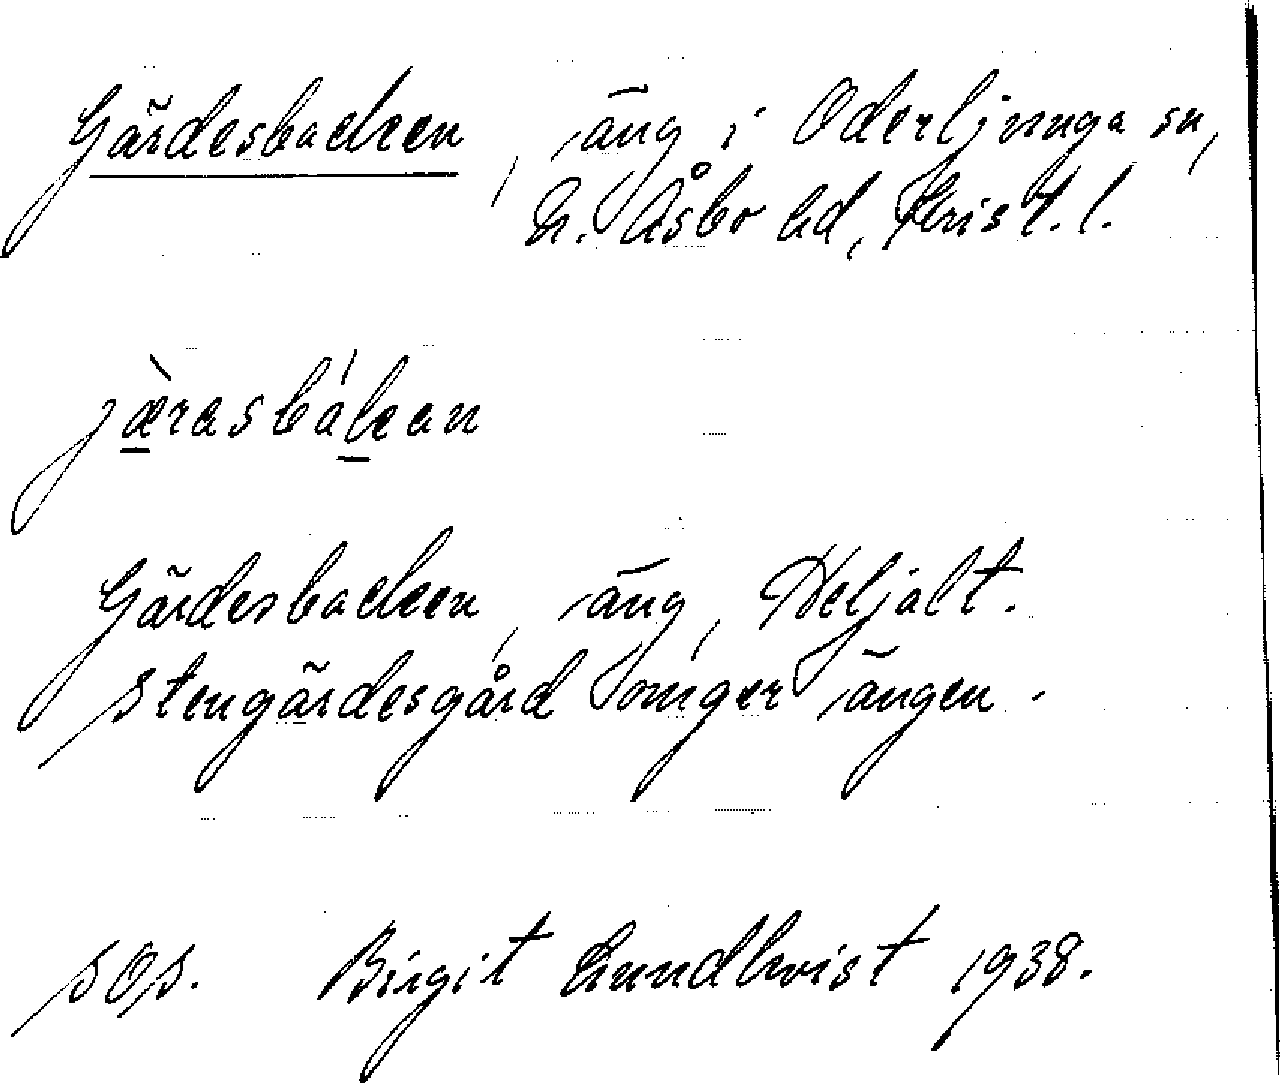 Gärdesbacken, äng i Oderljunga sn,
N. Åsbo hd, Krist. l.
jæ̀rasbákan
Gärdesbacken, äng, Heljalt.
Stengärdesgård omger ängen.
SOS. Birgit Lundkvist 1938.